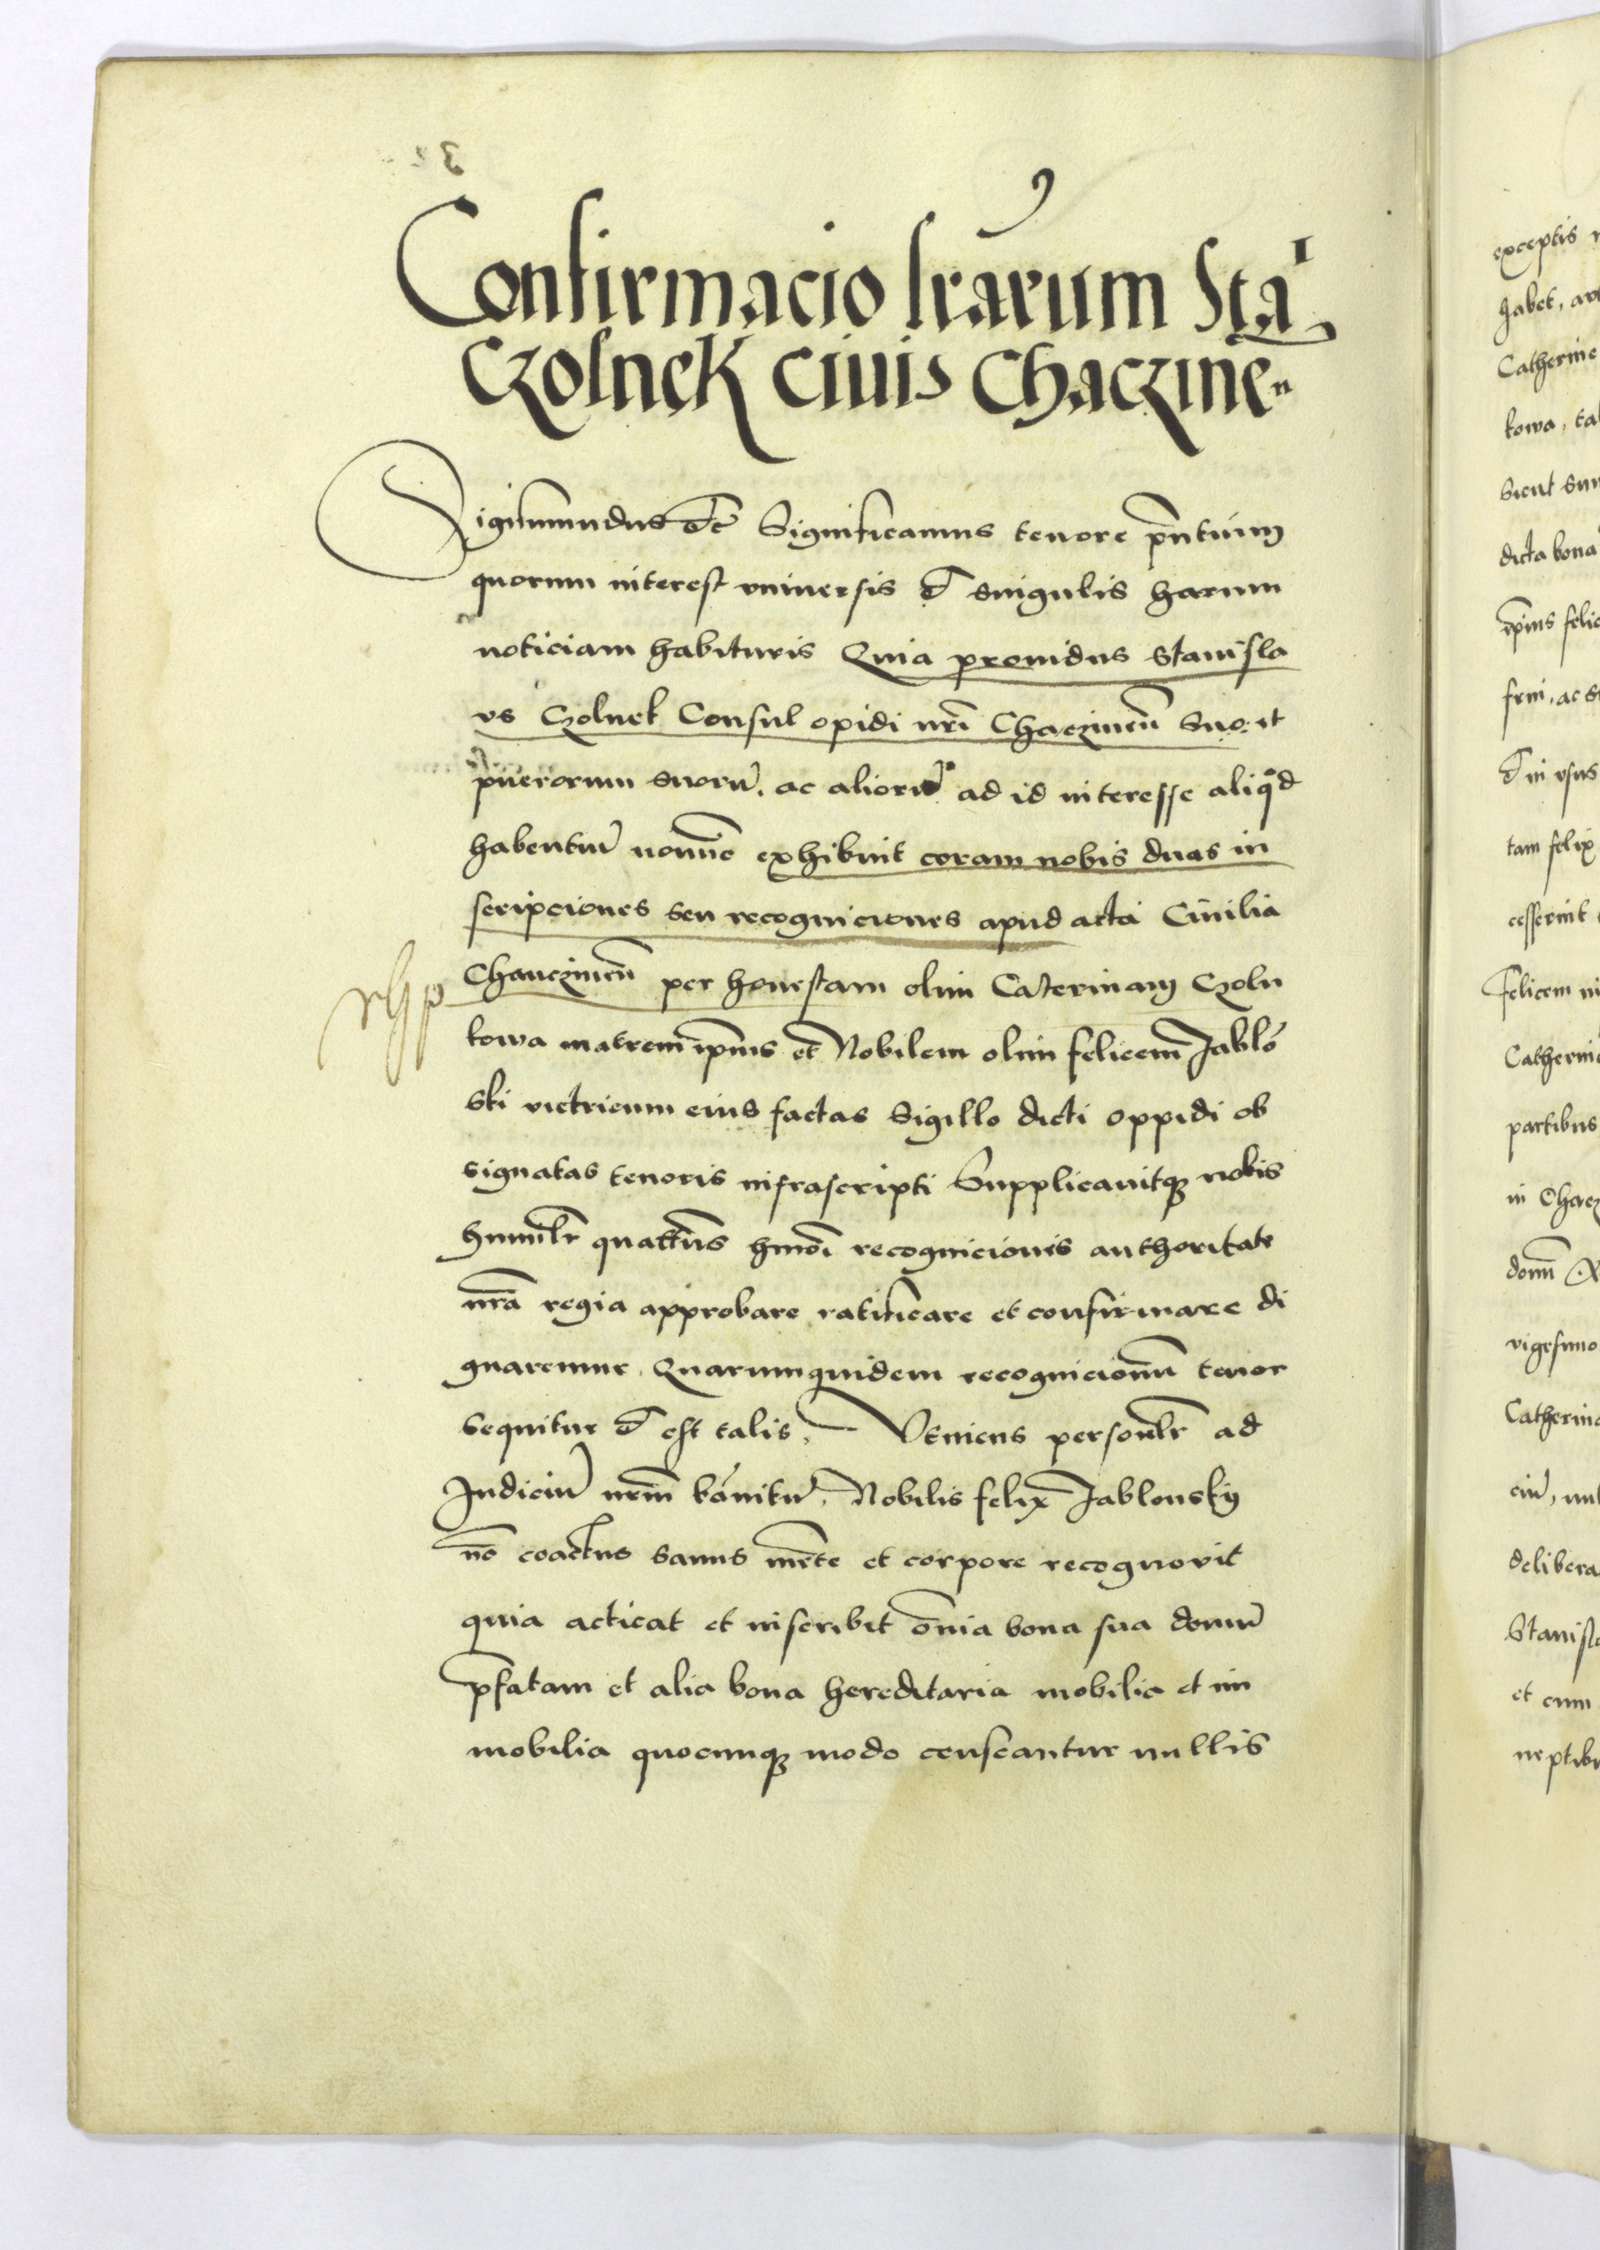 Confirmacio lrarum Sta
Czolnek civis Chaczinen
Sigismundus etc Significamus tenore pntium
quorum interest vniuersis et singulis harum
noticiam habituris Quia prouidus Stanisla
us Czolnek Consul opidi nri Chaczinen suo et
puerorum suorum, ac aliorum ad id interesse aliqd
habentium nomine exhibuit coram nobis duas in
scripciones seu recogniciones apud acta Ciuilia
Chaczinen per honestam olim Caterinam Czoln
kowa matrem ipius et Nobilem olim felicem Jablo
ski victricum eius factas Sigillo dicti oppidi ob
signatas tenoris infrascripti Supplicauitque nobis
humilr quatenus hmoi recogniciones authoritate
nra regia approbare ratificare et confirmare di
gnaremur, Quarumquidem recognicionum tenor
sequitur et est talis. Veniens personalr ad
Judicium nrm banitum, Nobilis felix Jablonsky
no coactus sanus mente et corpore recognovit
quia acticat et inscribit omnia bona sua domum
pfatam et alia bona hereditaria mobilia et im
mobilia quocunque modo censeantur nullis
exceptis
habet,
Catherine
kowa,
sicut
dicta bona
ipius
ac
et in usus
tam felix
cesserint
felicem
partibus
in Chacz
domum
vigesimo
delibera
Stanisla
et cum
neptibu